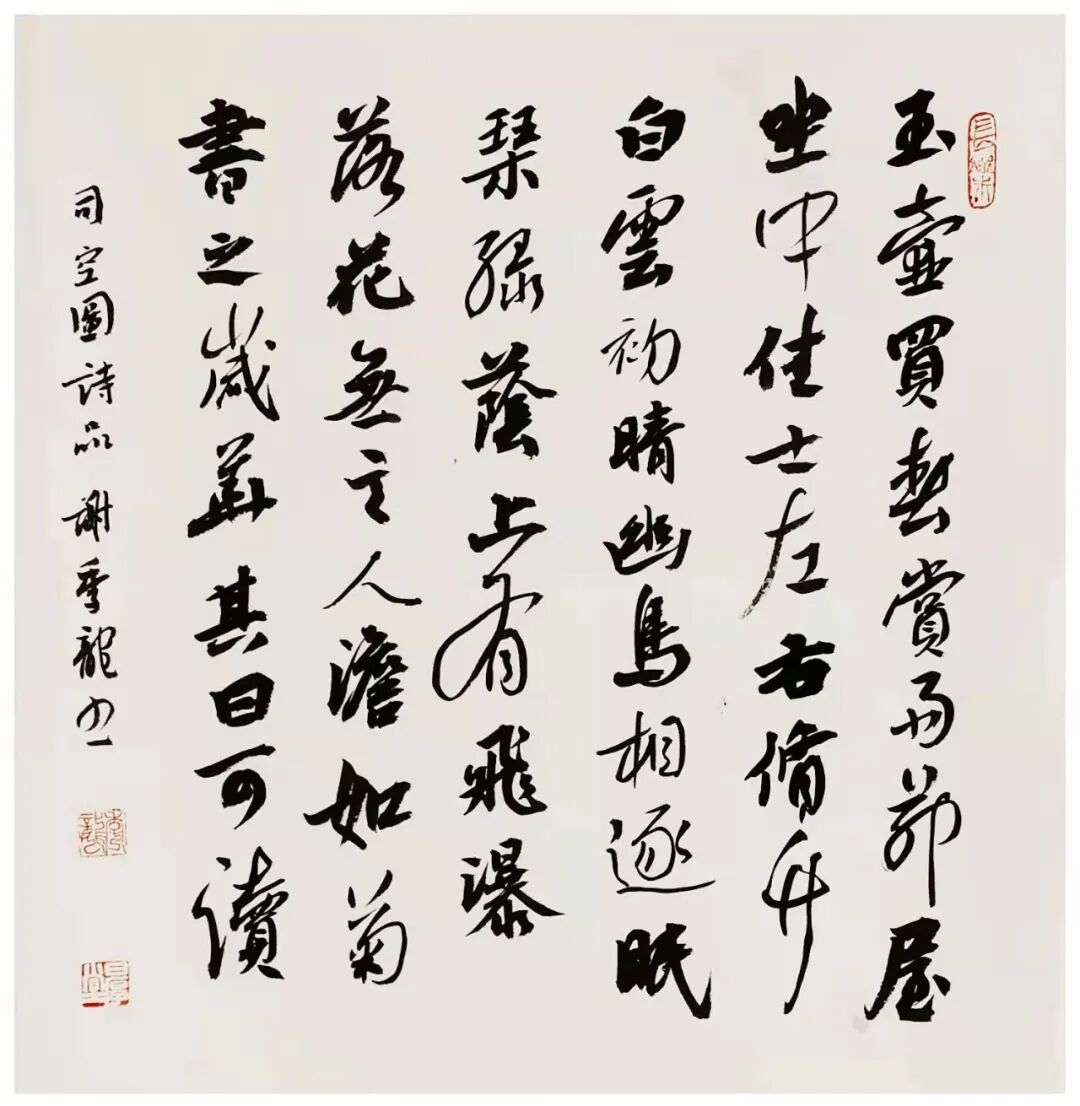 玉壺買春賞雨茆屋
坐中佳士左右脩竹
白雲初晴幽鳥相逐眠
琴綠蔭上有飛瀑
落花無言人澹如菊
書之歲華其曰可讀
司空圖詩品 謝季龍书